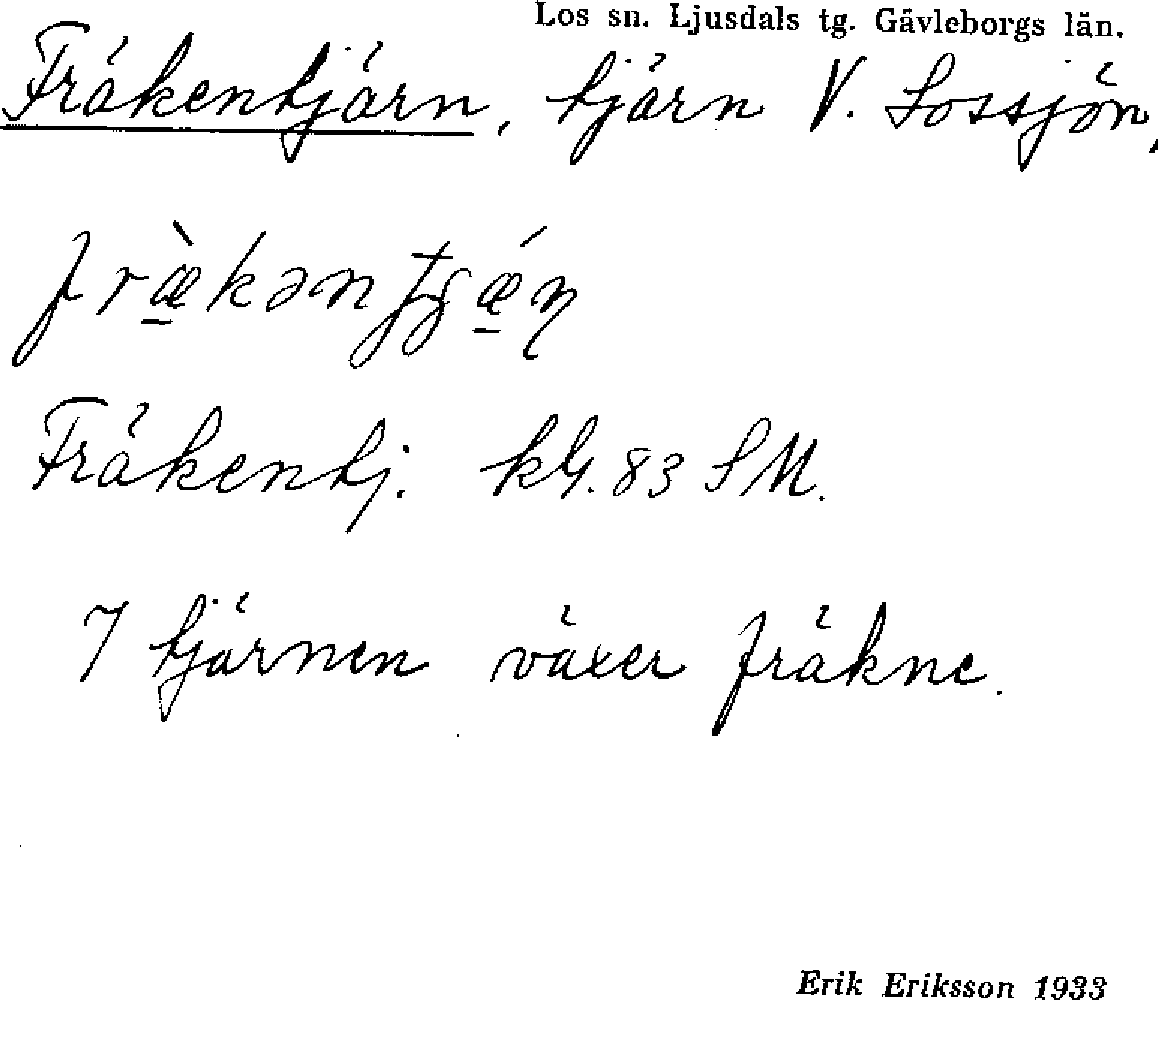 Los sn. Ljusdals tg. Gävleborgs län.
Fräkentjärn, tjärn V. Lossjön,
fræ̀kən
Fräkentj. kG. 83 SM.
I tjärnen växer fräkne.
Erik Eriksson 1933